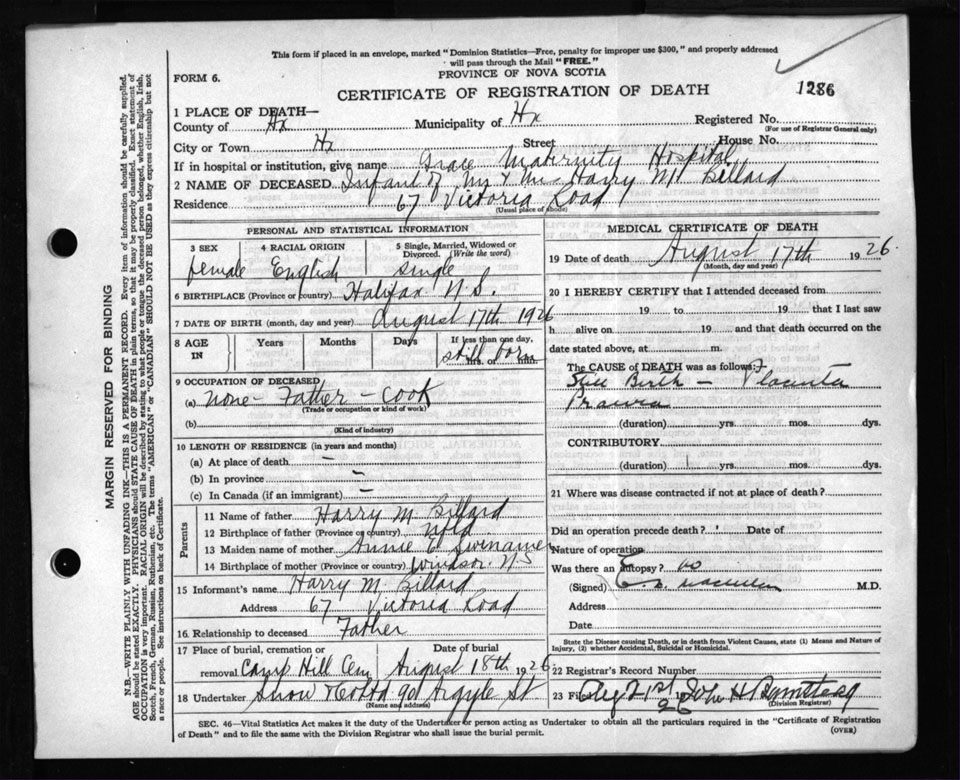 This form if placed in an envelope, marked "Dominion Statistics—Free, penalty for improper use $300," and properly addressed
will pass through the Mail "FREE."
PROVINCE OF NOVA SCOTIA
FORM 6.
CERTIFICATE OF REGISTRATION OF DEATH
1286
1 PLACE OF DEATH—
County of Hx Municipality of Hx Registered No.
(For use of Registrar General only)
City or Town Hx Street House No.
If in hospital or institution, give name Grace Maternity Hospital
2 NAME OF DECEASED Infant of Mr & Mrs Harry M Billard
Residence 67 Victoria Road
(Usual place of abode)
PERSONAL AND STATISTICAL INFORMATION
3 SEX 4 RACIAL ORIGIN 5 Single, Married, Widowed or
Divorced. (Write the word)
female English single
6 BIRTHPLACE (Province or country) Halifax N.S.
7 DATE OF BIRTH (month, day and year) August 17th 1926
8 AGE IN Years Months Days If less than one day,
still born hrs. or min.
9 OCCUPATION OF DECEASED
(a) none - Father - Cook
(Trade or occupation or kind of work)
(b)
(Kind of industry)
10 LENGTH OF RESIDENCE (in years and months)
(a) At place of death —
(b) In province —
(c) In Canada (if an immigrant) —
Parents
11 Name of father Harry M. Billard
12 Birthplace of father (Province or country) Nfld
13 Maiden name of mother Annie E
14 Birthplace of mother (Province or country) Windsor N S
15 Informant's name Harry M. Billard
Address 67 Victoria Road
16 Relationship to deceased Father
17 Place of burial, cremation or Date of burial
removal Camp Hill Cem August 18th 1926.
18 Undertaker Snow & Co Ltd 90 Argyle St
(Name and address)
MEDICAL CERTIFICATE OF DEATH
19 Date of death August 17th 1926.
(Month, day and year)
20 I HEREBY CERTIFY that I attended deceased from
19 to 19 that I last saw
h alive on 19 and that death occurred on the
date stated above, at m.
The CAUSE OF DEATH was as follows:
Still Birth — Placenta
Praevia
(duration) yrs. mos. dys.
CONTRIBUTORY
(duration) yrs. mos. dys.
21 Where was disease contracted if not at place of death?
Did an operation precede death? Date of
Nature of operation
Was there an autopsy? no
(Signed) M.D.
Address
Date
State the Disease causing Death, or in death from Violent Causes, state (1) Means and Nature of
Injury, (2) whether Accidental, Suicidal or Homicidal.
22 Registrar's Record Number
23 Filed 21st 26 John H
(Division Registrar)
SEC. 46—Vital Statistics Act makes it the duty of the Undertaker or person acting as Undertaker to obtain all the particulars required in the "Certificate of Registration
of Death" and to file the same with the Division Registrar who shall issue the burial permit.
(OVER)
MARGIN RESERVED FOR BINDING
N.B.—WRITE PLAINLY WITH UNFADING INK—THIS IS A PERMANENT RECORD. Every item of information should be carefully supplied.
AGE should be stated EXACTLY. PHYSICIANS should STATE CAUSE OF DEATH in plain terms, so that it may be properly classified. Exact statement of
OCCUPATION is very important. RACIAL ORIGIN will be described by stating to what people or tongue the deceased person belonged, whether English, Irish,
Scotch, French, German, Russian, Ruthenian, etc. The terms "AMERICAN" or "CANADIAN" SHOULD NOT BE USED as they express citizenship but not
a race or people. See instructions on back of Certificate.